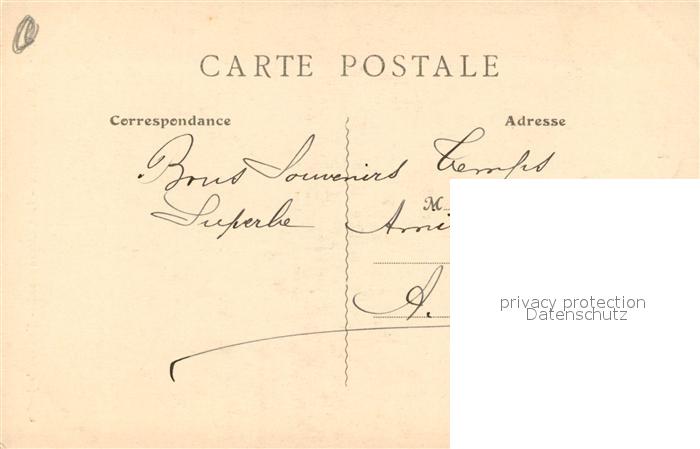 CARTE POSTALE
Correspondance Adresse
Bons Souvenirs Temps
Superbe
M
A.
privacy protection
Datenschutz